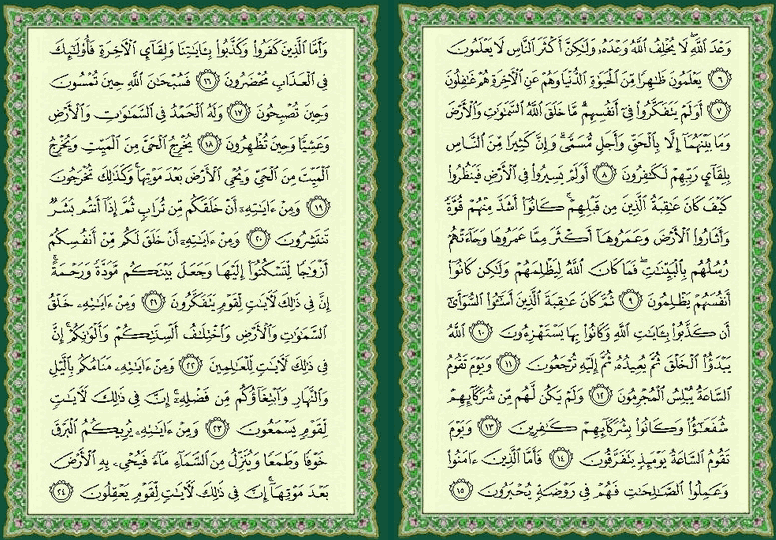 وَعْدَ ٱللَّهِ ۖ لَا يُخْلِفُ ٱللَّهُ وَعْدَهُۥ وَلَٰكِنَّ أَكْثَرَ ٱلنَّاسِ لَا يَعْلَمُونَ
﴿٦﴾ يَعْلَمُونَ ظَٰهِرًا مِّنَ ٱلْحَيَوٰةِ ٱلدُّنْيَا وَهُمْ عَنِ ٱلْءَاخِرَةِ هُمْ غَٰفِلُونَ
﴿٧﴾ أَوَلَمْ يَتَفَكَّرُوا۟ فِىٓ أَنفُسِهِم ۗ مَّا خَلَقَ ٱللَّهُ ٱلسَّمَٰوَٰتِ وَٱلْأَرْضَ
وَمَا بَيْنَهُمَآ إِلَّا بِٱلْحَقِّ وَأَجَلٍ مُّسَمًّى ۗ وَإِنَّ كَثِيرًا مِّنَ ٱلنَّاسِ
بِلِقَآئِ رَبِّهِمْ لَكَٰفِرُونَ ﴿٨﴾ أَوَلَمْ يَسِيرُوا۟ فِى ٱلْأَرْضِ فَيَنظُرُوا۟
كَيْفَ كَانَ عَٰقِبَةُ ٱلَّذِينَ مِن قَبْلِهِمْ ۚ كَانُوٓا۟ أَشَدَّ مِنْهُمْ قُوَّةً
وَأَثَارُوا۟ ٱلْأَرْضَ وَعَمَرُوهَآ أَكْثَرَ مِمَّا عَمَرُوهَا وَجَآءَتْهُمْ
رُسُلُهُم بِٱلْبَيِّنَٰتِ ۖ فَمَا كَانَ ٱللَّهُ لِيَظْلِمَهُمْ وَلَٰكِن كَانُوٓا۟
أَنفُسَهُمْ يَظْلِمُونَ ﴿٩﴾ ثُمَّ كَانَ عَٰقِبَةَ ٱلَّذِينَ أَسَٰٓـُٔوا۟ ٱلسُّوٓأَىٰٓ
أَن كَذَّبُوا۟ بِـَٔايَٰتِ ٱللَّهِ وَكَانُوا۟ بِهَا يَسْتَهْزِءُونَ ﴿١٠﴾ ٱللَّهُ
يَبْدَؤُا۟ ٱلْخَلْقَ ثُمَّ يُعِيدُهُۥ ثُمَّ إِلَيْهِ تُرْجَعُونَ ﴿١١﴾ وَيَوْمَ تَقُومُ
ٱلسَّاعَةُ يُبْلِسُ ٱلْمُجْرِمُونَ ﴿١٢﴾ وَلَمْ يَكُن لَّهُم مِّن شُرَكَآئِهِمْ
شُفَعَٰٓؤُا۟ وَكَانُوا۟ بِشُرَكَآئِهِمْ كَٰفِرِينَ ﴿١٣﴾ وَيَوْمَ
تَقُومُ ٱلسَّاعَةُ يَوْمَئِذٍ يَتَفَرَّقُونَ ﴿١٤﴾ فَأَمَّا ٱلَّذِينَ ءَامَنُوا۟
وَعَمِلُوا۟ ٱلصَّٰلِحَٰتِ فَهُمْ فِى رَوْضَةٍ يُحْبَرُونَ ﴿١٥﴾
وَأَمَّا ٱلَّذِينَ كَفَرُوا۟ وَكَذَّبُوا۟ بِـَٔايَٰتِنَا وَلِقَآئِ ٱلْءَاخِرَةِ فَأُو۟لَٰٓئِكَ
فِى ٱلْعَذَابِ مُحْضَرُونَ ﴿١٦﴾ فَسُبْحَٰنَ ٱللَّهِ حِينَ تُمْسُونَ
وَحِينَ تُصْبِحُونَ ﴿١٧﴾ وَلَهُ ٱلْحَمْدُ فِى ٱلسَّمَٰوَٰتِ وَٱلْأَرْضِ
وَعَشِيًّا وَحِينَ تُظْهِرُونَ ﴿١٨﴾ يُخْرِجُ ٱلْحَىَّ مِنَ ٱلْمَيِّتِ وَيُخْرِجُ
ٱلْمَيِّتَ مِنَ ٱلْحَىِّ وَيُحْىِ ٱلْأَرْضَ بَعْدَ مَوْتِهَا ۚ وَكَذَٰلِكَ تُخْرَجُونَ
﴿١٩﴾ وَمِنْ ءَايَٰتِهِۦٓ أَنْ خَلَقَكُم مِّن تُرَابٍ ثُمَّ إِذَآ أَنتُم بَشَرٌ
تَنتَشِرُونَ ﴿٢٠﴾ وَمِنْ ءَايَٰتِهِۦٓ أَنْ خَلَقَ لَكُم مِّنْ أَنفُسِكُمْ
أَزْوَٰجًا لِّتَسْكُنُوٓا۟ إِلَيْهَا وَجَعَلَ بَيْنَكُم مَّوَدَّةً وَرَحْمَةً ۚ
إِنَّ فِى ذَٰلِكَ لَءَايَٰتٍ لِّقَوْمٍ يَتَفَكَّرُونَ ﴿٢١﴾ وَمِنْ ءَايَٰتِهِۦ خَلْقُ
ٱلسَّمَٰوَٰتِ وَٱلْأَرْضِ وَٱخْتِلَٰفُ أَلْسِنَتِكُمْ وَأَلْوَٰنِكُمْ ۚ إِنَّ
فِى ذَٰلِكَ لَءَايَٰتٍ لِّلْعَٰلِمِينَ ﴿٢٢﴾ وَمِنْ ءَايَٰتِهِۦ مَنَامُكُم بِٱلَّيْلِ
وَٱلنَّهَارِ وَٱبْتِغَآؤُكُم مِّن فَضْلِهِۦٓ ۚ إِنَّ فِى ذَٰلِكَ لَءَايَٰتٍ
لِّقَوْمٍ يَسْمَعُونَ ﴿٢٣﴾ وَمِنْ ءَايَٰتِهِۦ يُرِيكُمُ ٱلْبَرْقَ
خَوْفًا وَطَمَعًا وَيُنَزِّلُ مِنَ ٱلسَّمَآءِ مَآءً فَيُحْىِۦ بِهِ ٱلْأَرْضَ
بَعْدَ مَوْتِهَآ ۚ إِنَّ فِى ذَٰلِكَ لَءَايَٰتٍ لِّقَوْمٍ يَعْقِلُونَ ﴿٢٤﴾